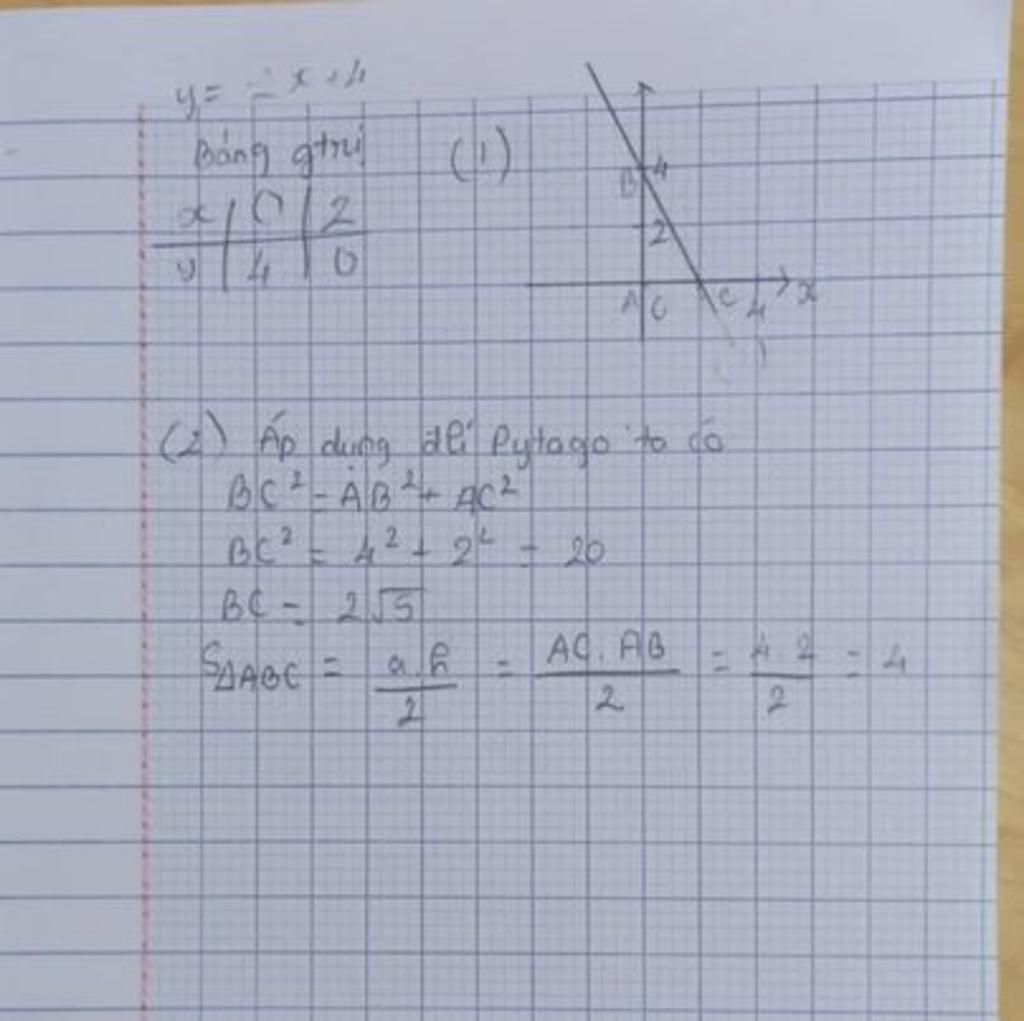 y = x + 4
Bảng gtrị (1)
x | 0 | 2
y | 4 | 0
B 4
2
A 0 C 4 x
(2) Áp dụng đlí Pytago ta có
BC² = AB² + AC²
BC² = 4² + 2² = 20
BC = 2√5
S∆ABC = a.h/2 = AC.AB/2 = 4.2/2 = 4